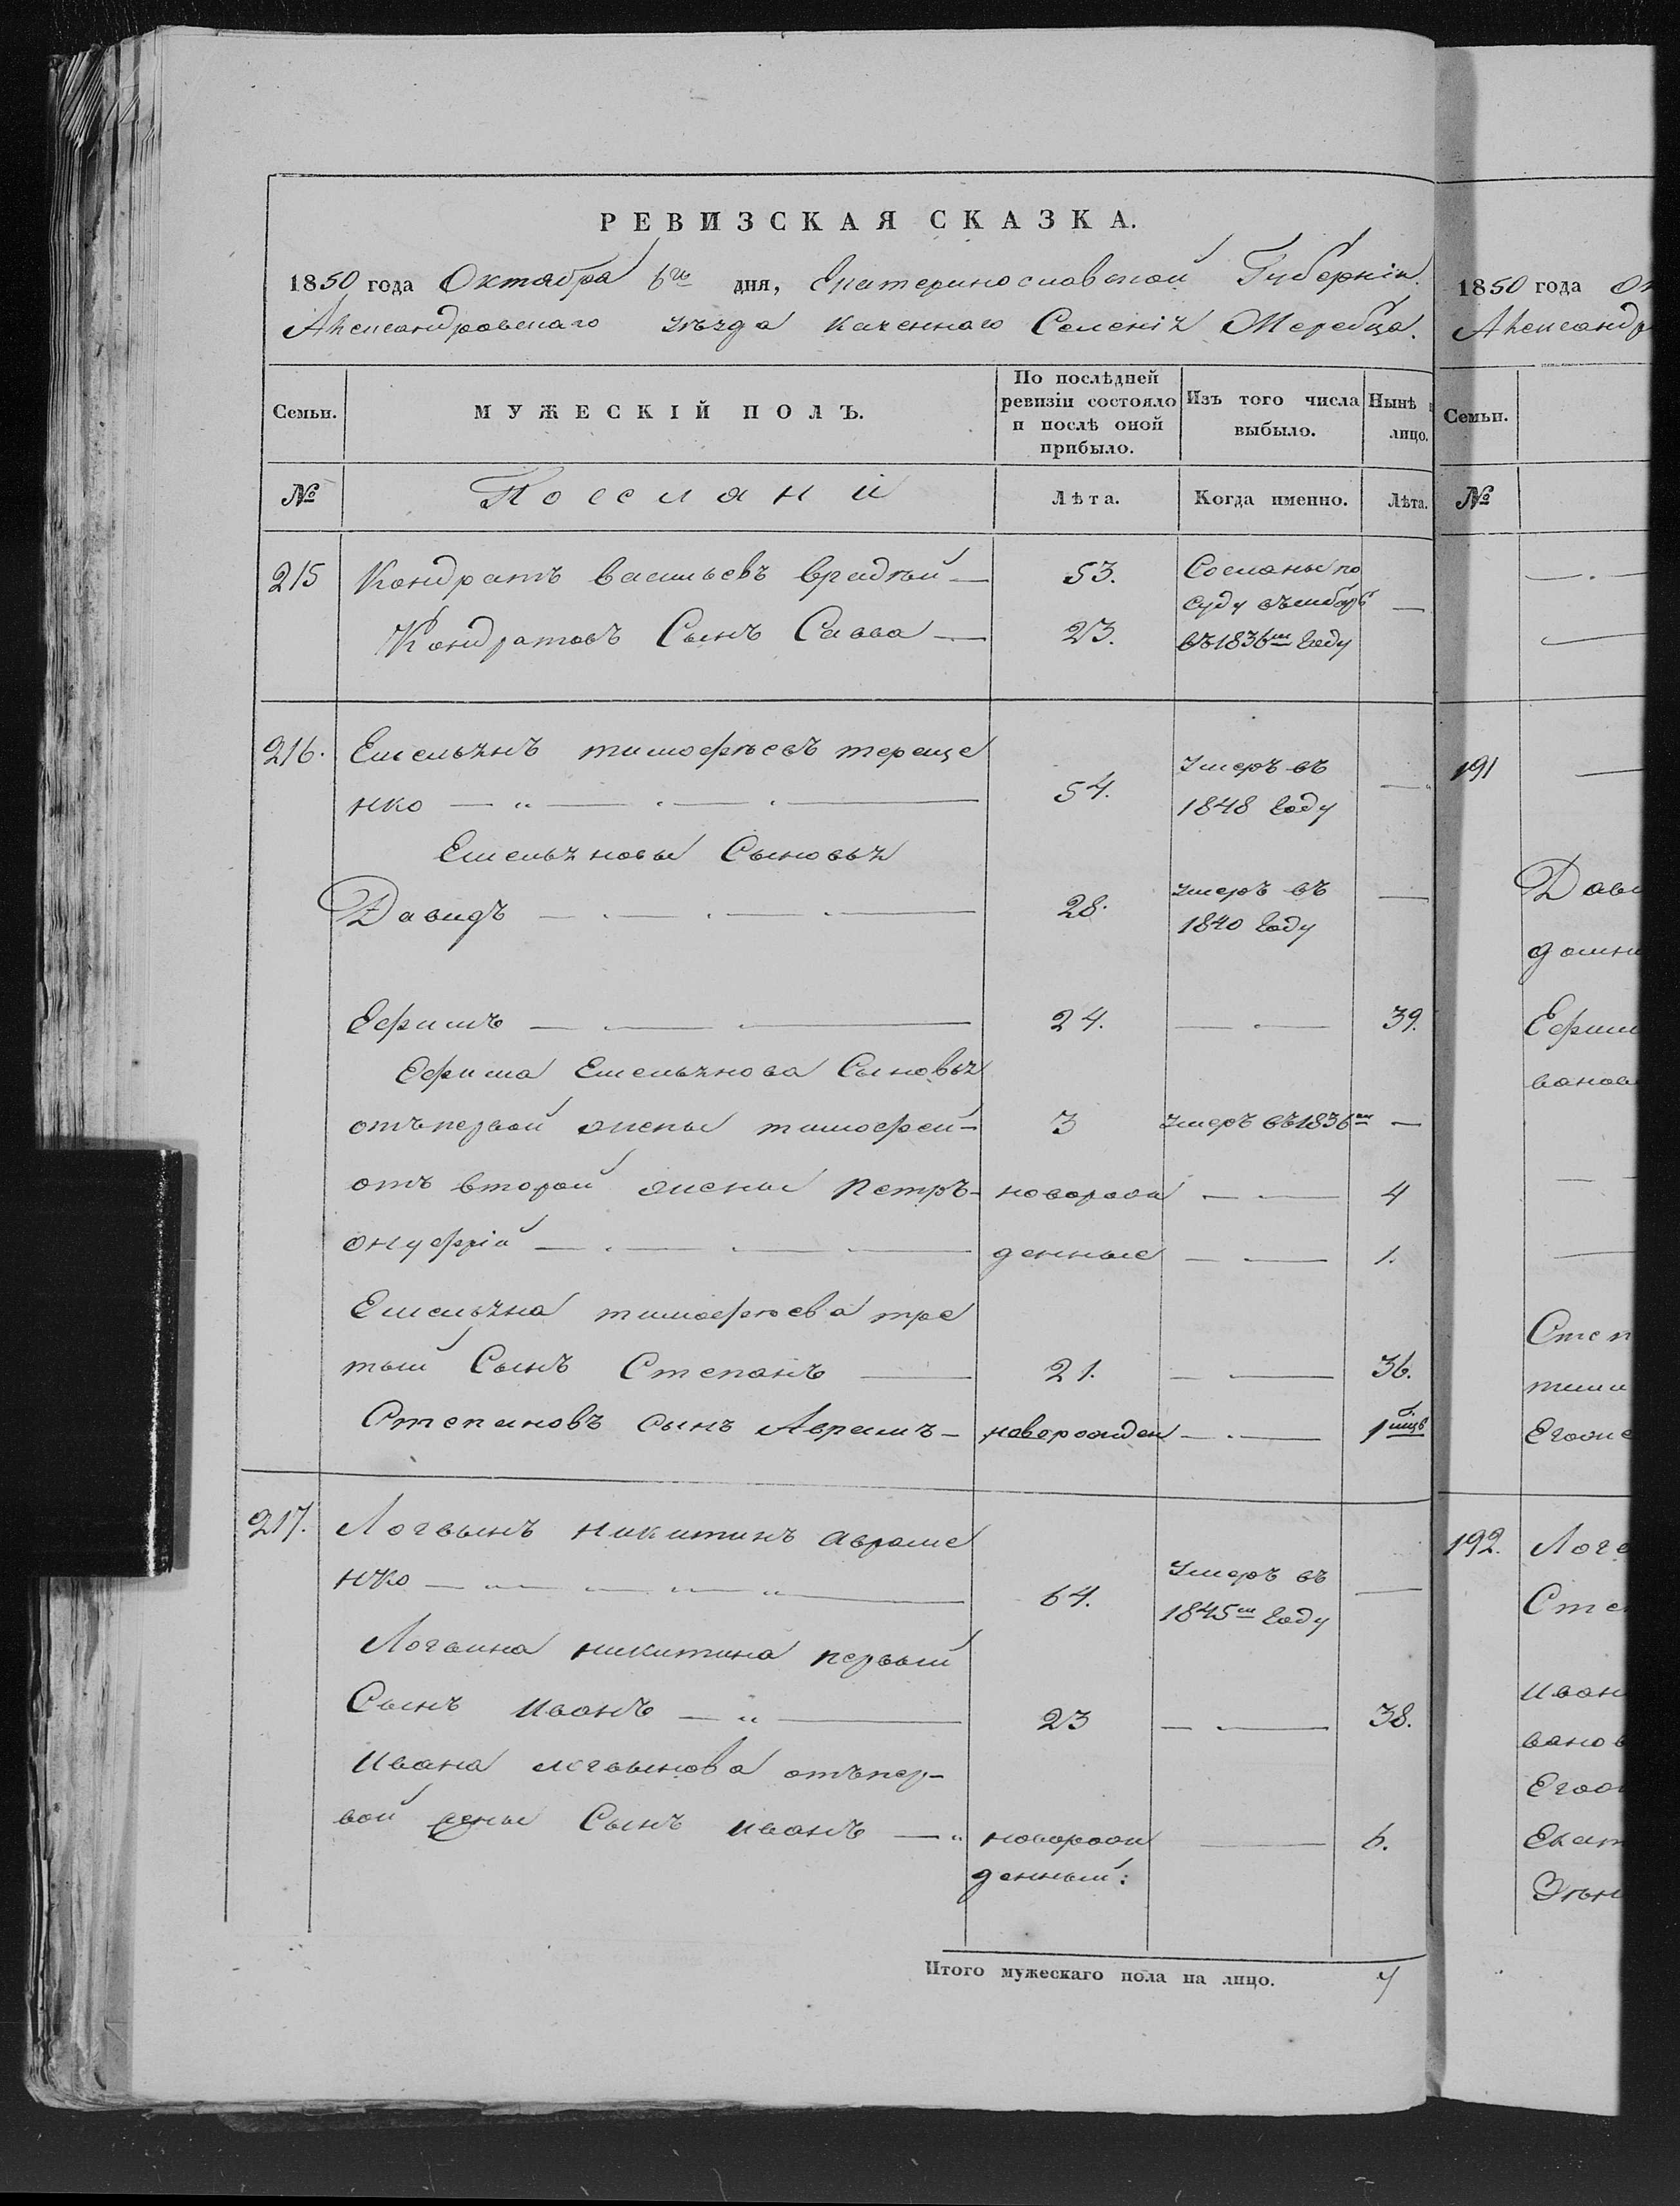 РЕВИЗСКАЯ СКАЗКА.
1850 года Октября 6го дня, Екатеринославской Губерніи
Александровскаго уѣзда казеннаго Селенія Жеребца.
Семьи.
МУЖЕСКІЙ ПОЛЪ.
По послѣдней ревизіи состояло и послѣ оной прибыло.
Изъ того числа выбыло.
Нынѣ
лицо.
№
Поселяни
Лѣта.
Когда именно.
Лѣта.
215 Кондратъ васильевъ 53. Сосланы по
суду въ
Кондратовъ Сынъ Савва 23. въ 1836м Году
216. Емельянъ тимофѣевъ тереще
нко 54. Умеръ въ 1848 Году
Емельяновы Сыновья
Давидъ 28. Умеръ въ 1840 Году
Ефимъ 24. 39.
Ефима Емельянова Сыновья
отъ первой жены тимофей 3 Умеръ въ 1836м
отъ второй жены Петръ новорож 4
онуфрій денные 1.
Емельяна тимофѣева тре
тый Сынъ Степанъ 21. 36.
Степановъ сынъ Аврамъ новорожден 1 мцъ
217. Логвынъ никитинъ авраме
нко 64. Умеръ въ 1845м Году
Логвина никитина первый
Сынъ иванъ 23 38.
ивана логвынова отъ пер-
вой жены Сынъ иванъ новорож 6.
денный:
Итого мужескаго пола на лицо. 7
1850 года Ок
Александр
Семьи.
№
191
Дави
Ефим
ванов
Степ
тимо
Егоже
192. Логв
Сте
иван
ванов
Егож
Екат